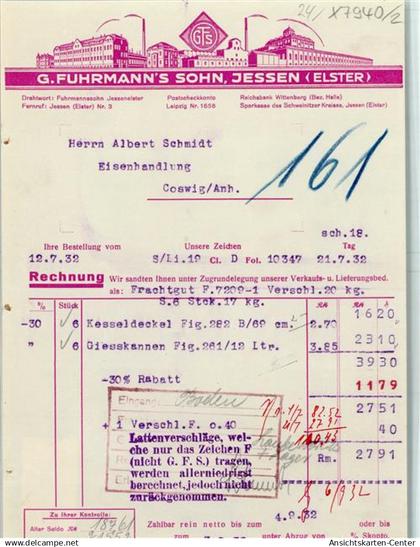 24/ X7940/2
GFS
G. FUHRMANN'S SOHN, JESSEN (ELSTER)
Drahtwort: Fuhrmannssohn Jessenelster
Fernruf: Jessen (Elster) Nr. 3
Postscheckkonto
Leipzig Nr. 1656
Reichsbank Wittenberg (Bez. Halle)
Sparkasse des Schweinitzer Kreises, Jessen (Elster)
Herrn Albert Schmidt
Eisenhandlung
Coswig/Anh.
161
sch.18.
Ihre Bestellung vom Unsere Zeichen Tag
12.7.32 S/Li.19 Cl. D Fol. 10347 21.7.32
Rechnung Wir sandten Ihnen unter Zugrundelegung unserer Verkaufs- u. Lieferungsbed.
als: Frachtgut F.7209-1 Verschl.20 kg.
S.6 Stck.17 kg.
% Stück
-30 6 Kesseldeckel Fig.282 B/69 cm 2.70 1620
" 6 Giesskannen Fig.261/12 Ltr. 3.85 2310
3930
-30% Rabatt 1179
2751
+ 1 Verschl.F. o.40 40
Rm. 2791
Boden
Lattenverschläge, wel-
che nur das Zeichen F
(nicht G. F. S.) tragen,
werden allerniedrigst
berechnet, jedoch nicht
zurückgenommen.
6/9 32
4.9.32
Zu Ihrer Kontrolle:
Alter Saldo
Zahlbar rein netto bis zum
% Skonto.
Ansichtskarten-Center